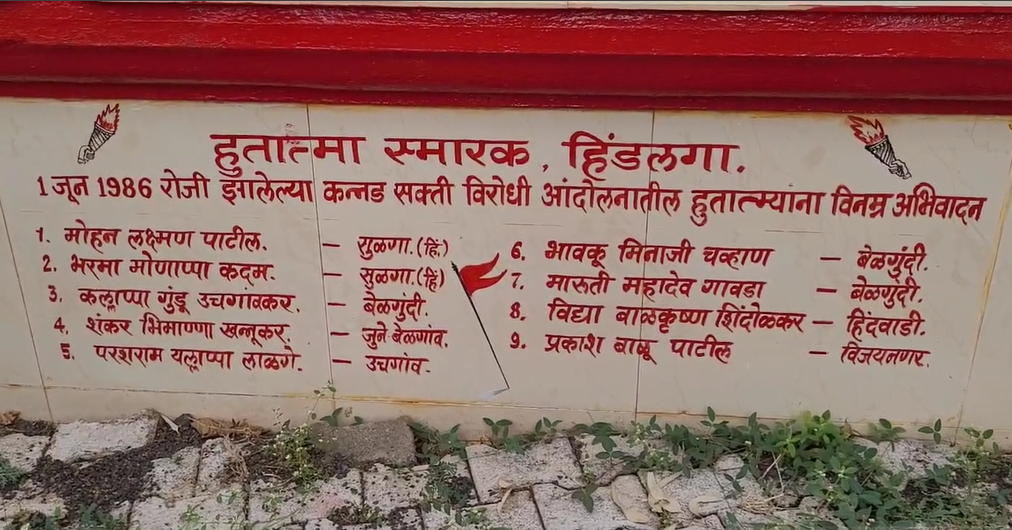 हुतात्मा स्मारक, हिंडलगा.
1 जून 1986 रोजी झालेल्या कन्नड सक्ती विरोधी आंदोलनातील हुतात्म्याना विनम्र अभिवादन
1. मोहन लक्ष्मण पाटील. – सुळगा.(हिं)
2. भरमा मोणाप्पा कदम. – सुळगा.(हिं)
3. कल्लाप्पा गुंडू उचगावकर. – बेळगुंदी.
4. शंकर भिमाण्णा खन्नूकर – जुने बेळगांव.
5. परशराम यल्लाप्पा लाळगे. – उचगांव.
6. भावकू मिनाजी चव्हाण – बेळगुंदी.
7. मारूती महादेव गावडा – बेळगुंदी.
8. विद्या बाळकृष्ण शिंदोळकर – हिंदवाडी.
9. प्रकाश बाळू पाटील – विजयनगर.